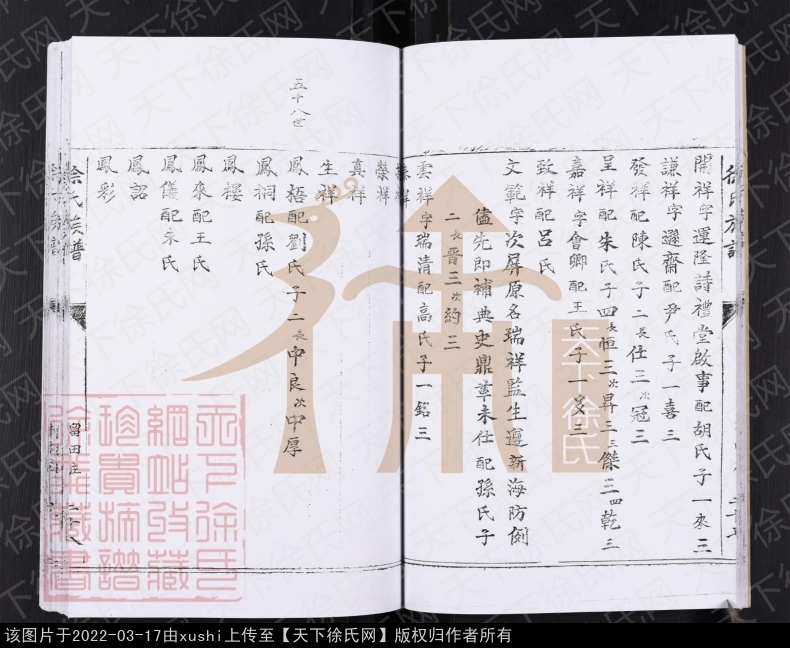 徐氏族譜
開祥字運隆詩禮堂啟事配胡氏子一來三
謙祥字遜齋配尹氏子一喜三
發祥配陳氏子二長仕三次冠三
呈祥配朱氏子四長恒三次昇三三傑三四乾三
嘉祥字會卿配王氏子一三
致祥配呂氏
文範字次屏原名瑞祥監生遵新海防例
儘先即補典史鼎革未仕配孫氏子
二長晋三次約三
雲祥字瑞清配高氏子一銘三
祥
榮祥
真祥
生祥
五十八世
鳳梧配劉氏子二長中良次中厚
鳳桐配孫氏
鳳樓
鳳來配王氏
鳳儀配朱氏
鳳詔
鳳彩
徐氏族譜
留田庄
天下徐氏
網站收藏
珍貴揃譜
徐業藏書
天下徐氏
天下徐氏网
该图片于2022-03-17由xushi上传至【天下徐氏网】版权归作者所有